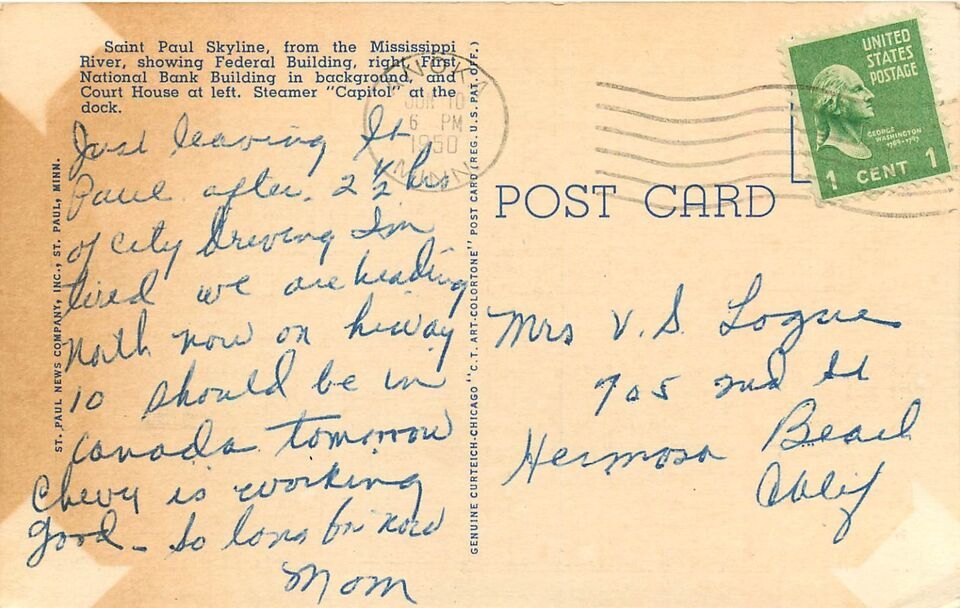 Saint Paul Skyline, from the Mississippi
River, showing Federal Building, right, First
National Bank Building in background, and
Court House at left. Steamer "Capitol" at the
dock.
Just leaving St
Paul after 2 1/2 hrs
of city driving Im
tired we are heading
North now on hiway
10 should be in
Canada tomorrow
Chevy is working
good - so long for now
Mom
ST. PAUL NEWS COMPANY, INC., ST. PAUL, MINN.
GENUINE CURTEICH-CHICAGO "C. T. ART-COLORTONE" POST CARD (REG. U. S. PAT. OFF.)
JUN 10
6 PM
1950
MINN.
POST CARD
UNITED
STATES
POSTAGE
GEORGE
WASHINGTON
1789-1797
1 CENT 1
Mrs V. S. Logue
705 2nd St
Hermosa Beach
Calif